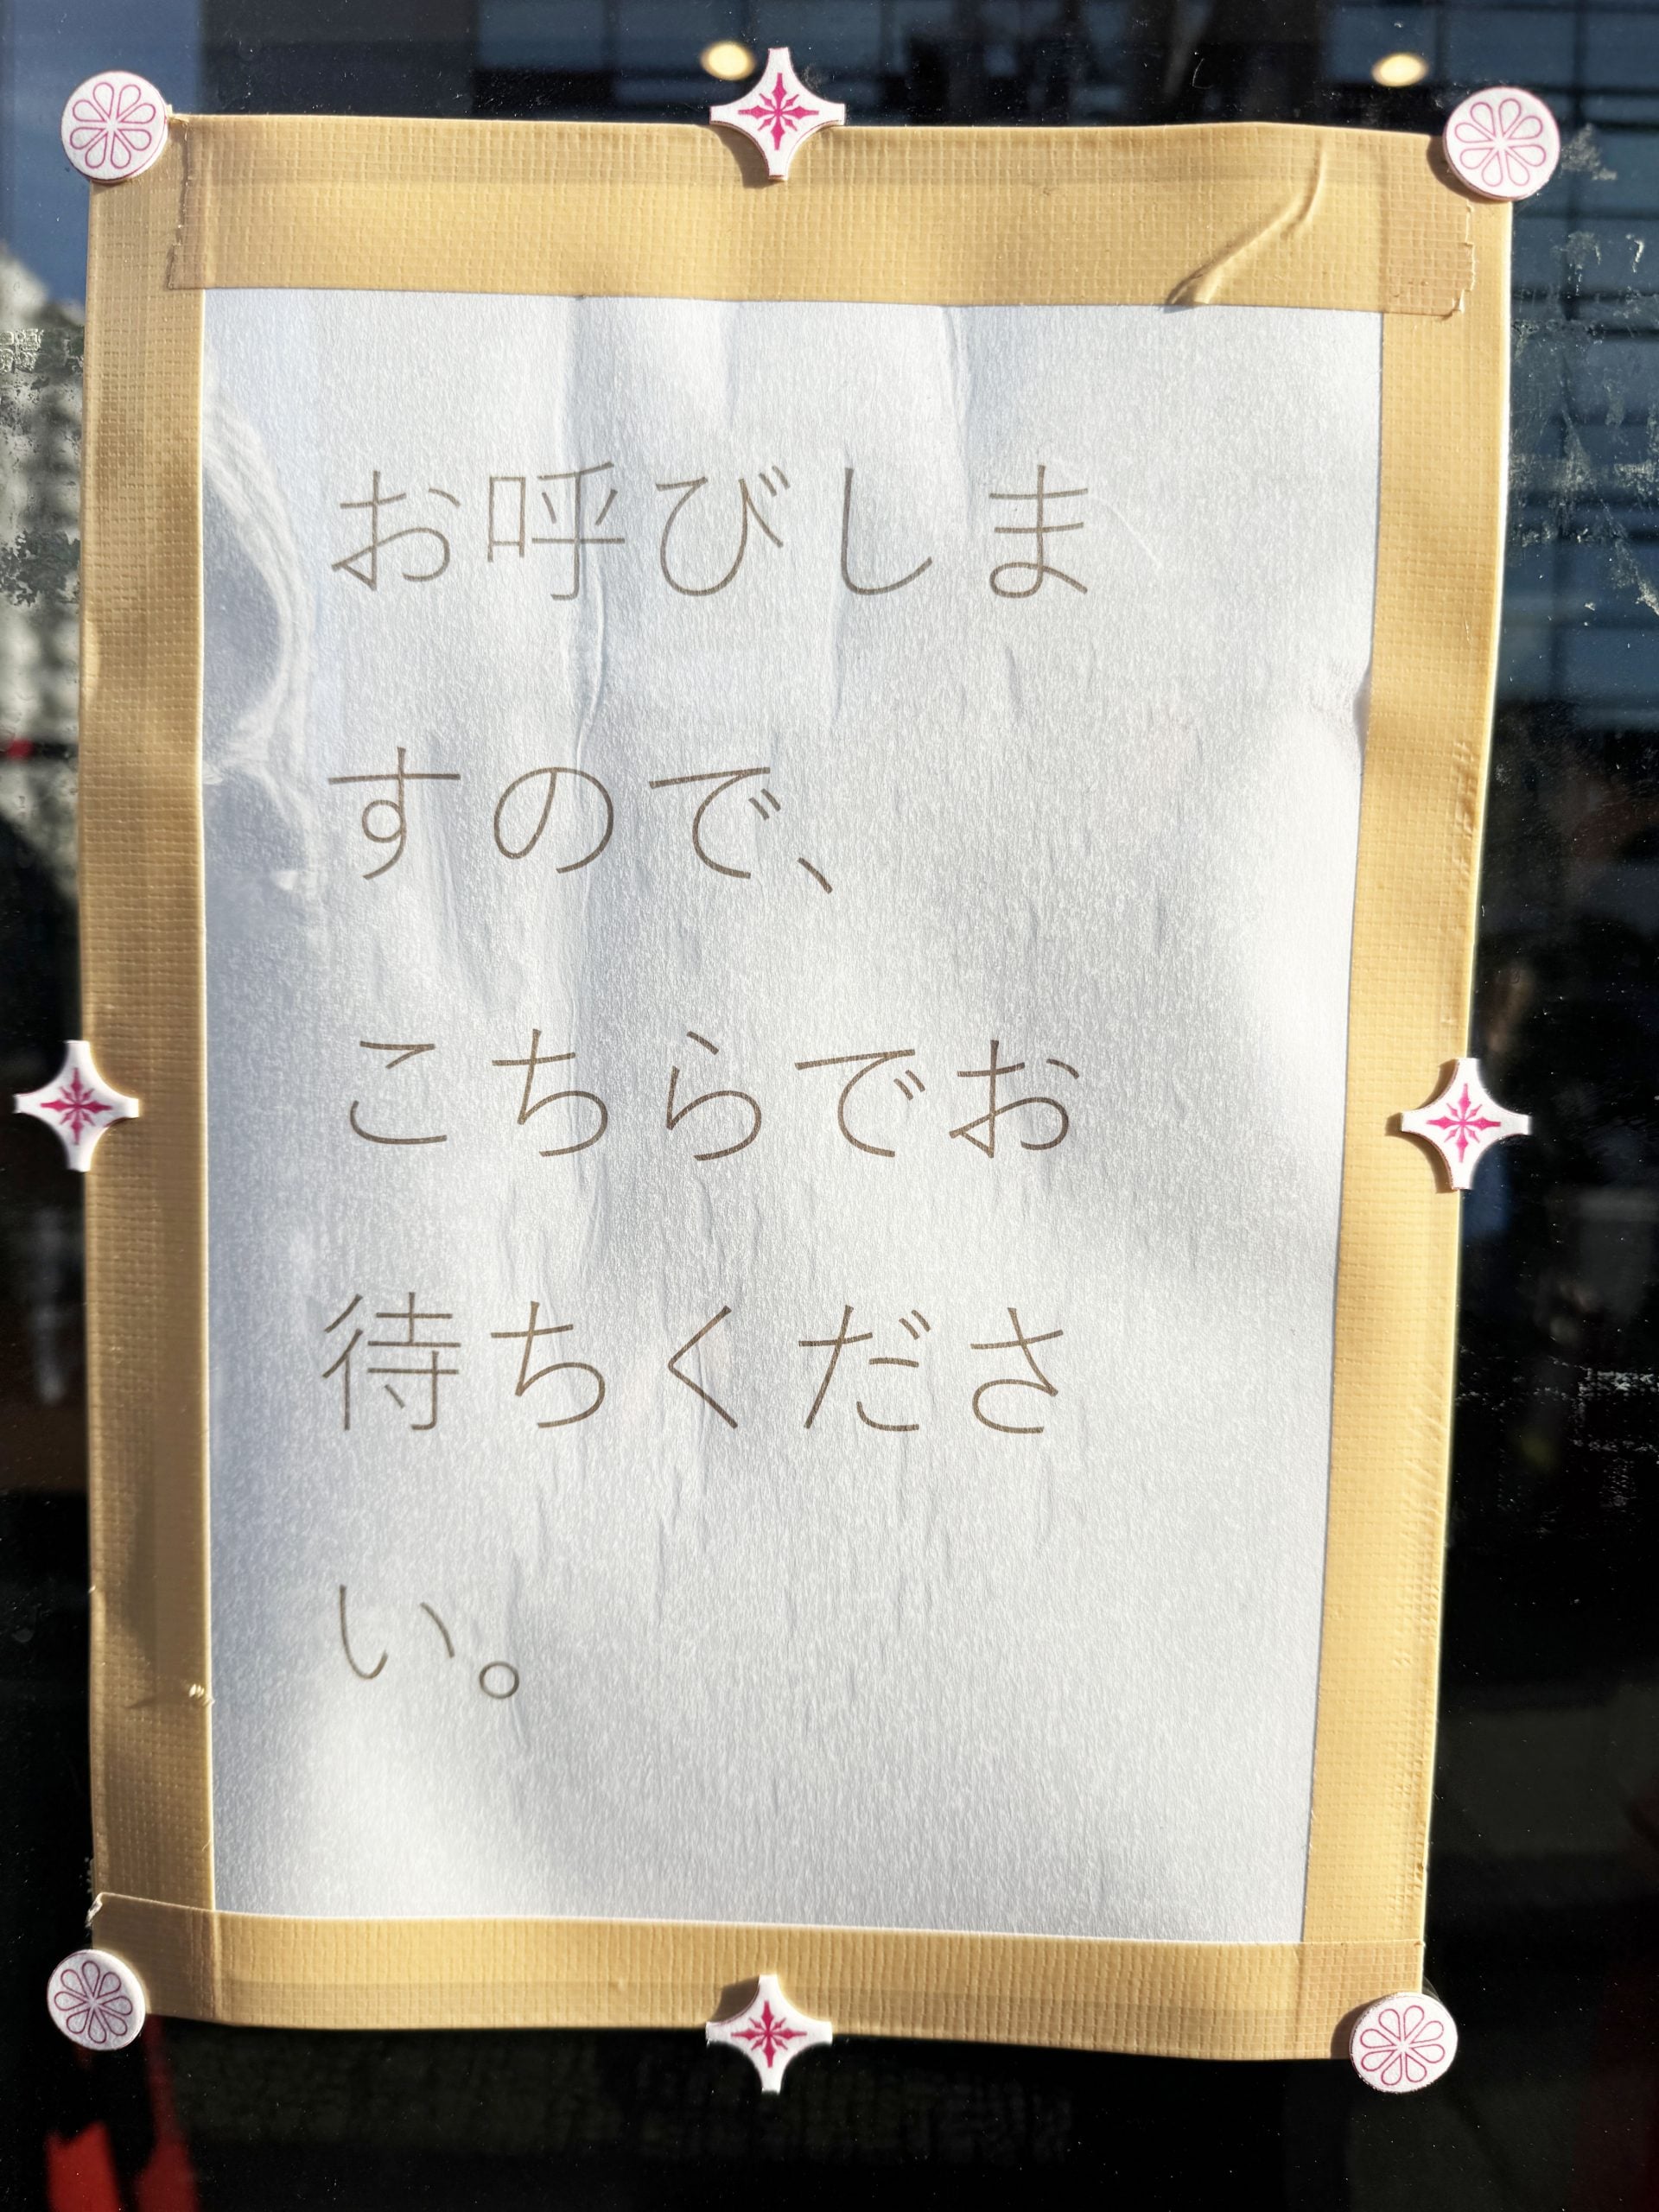 お呼びしま
すので、
こちらでお
待ちくださ
い。